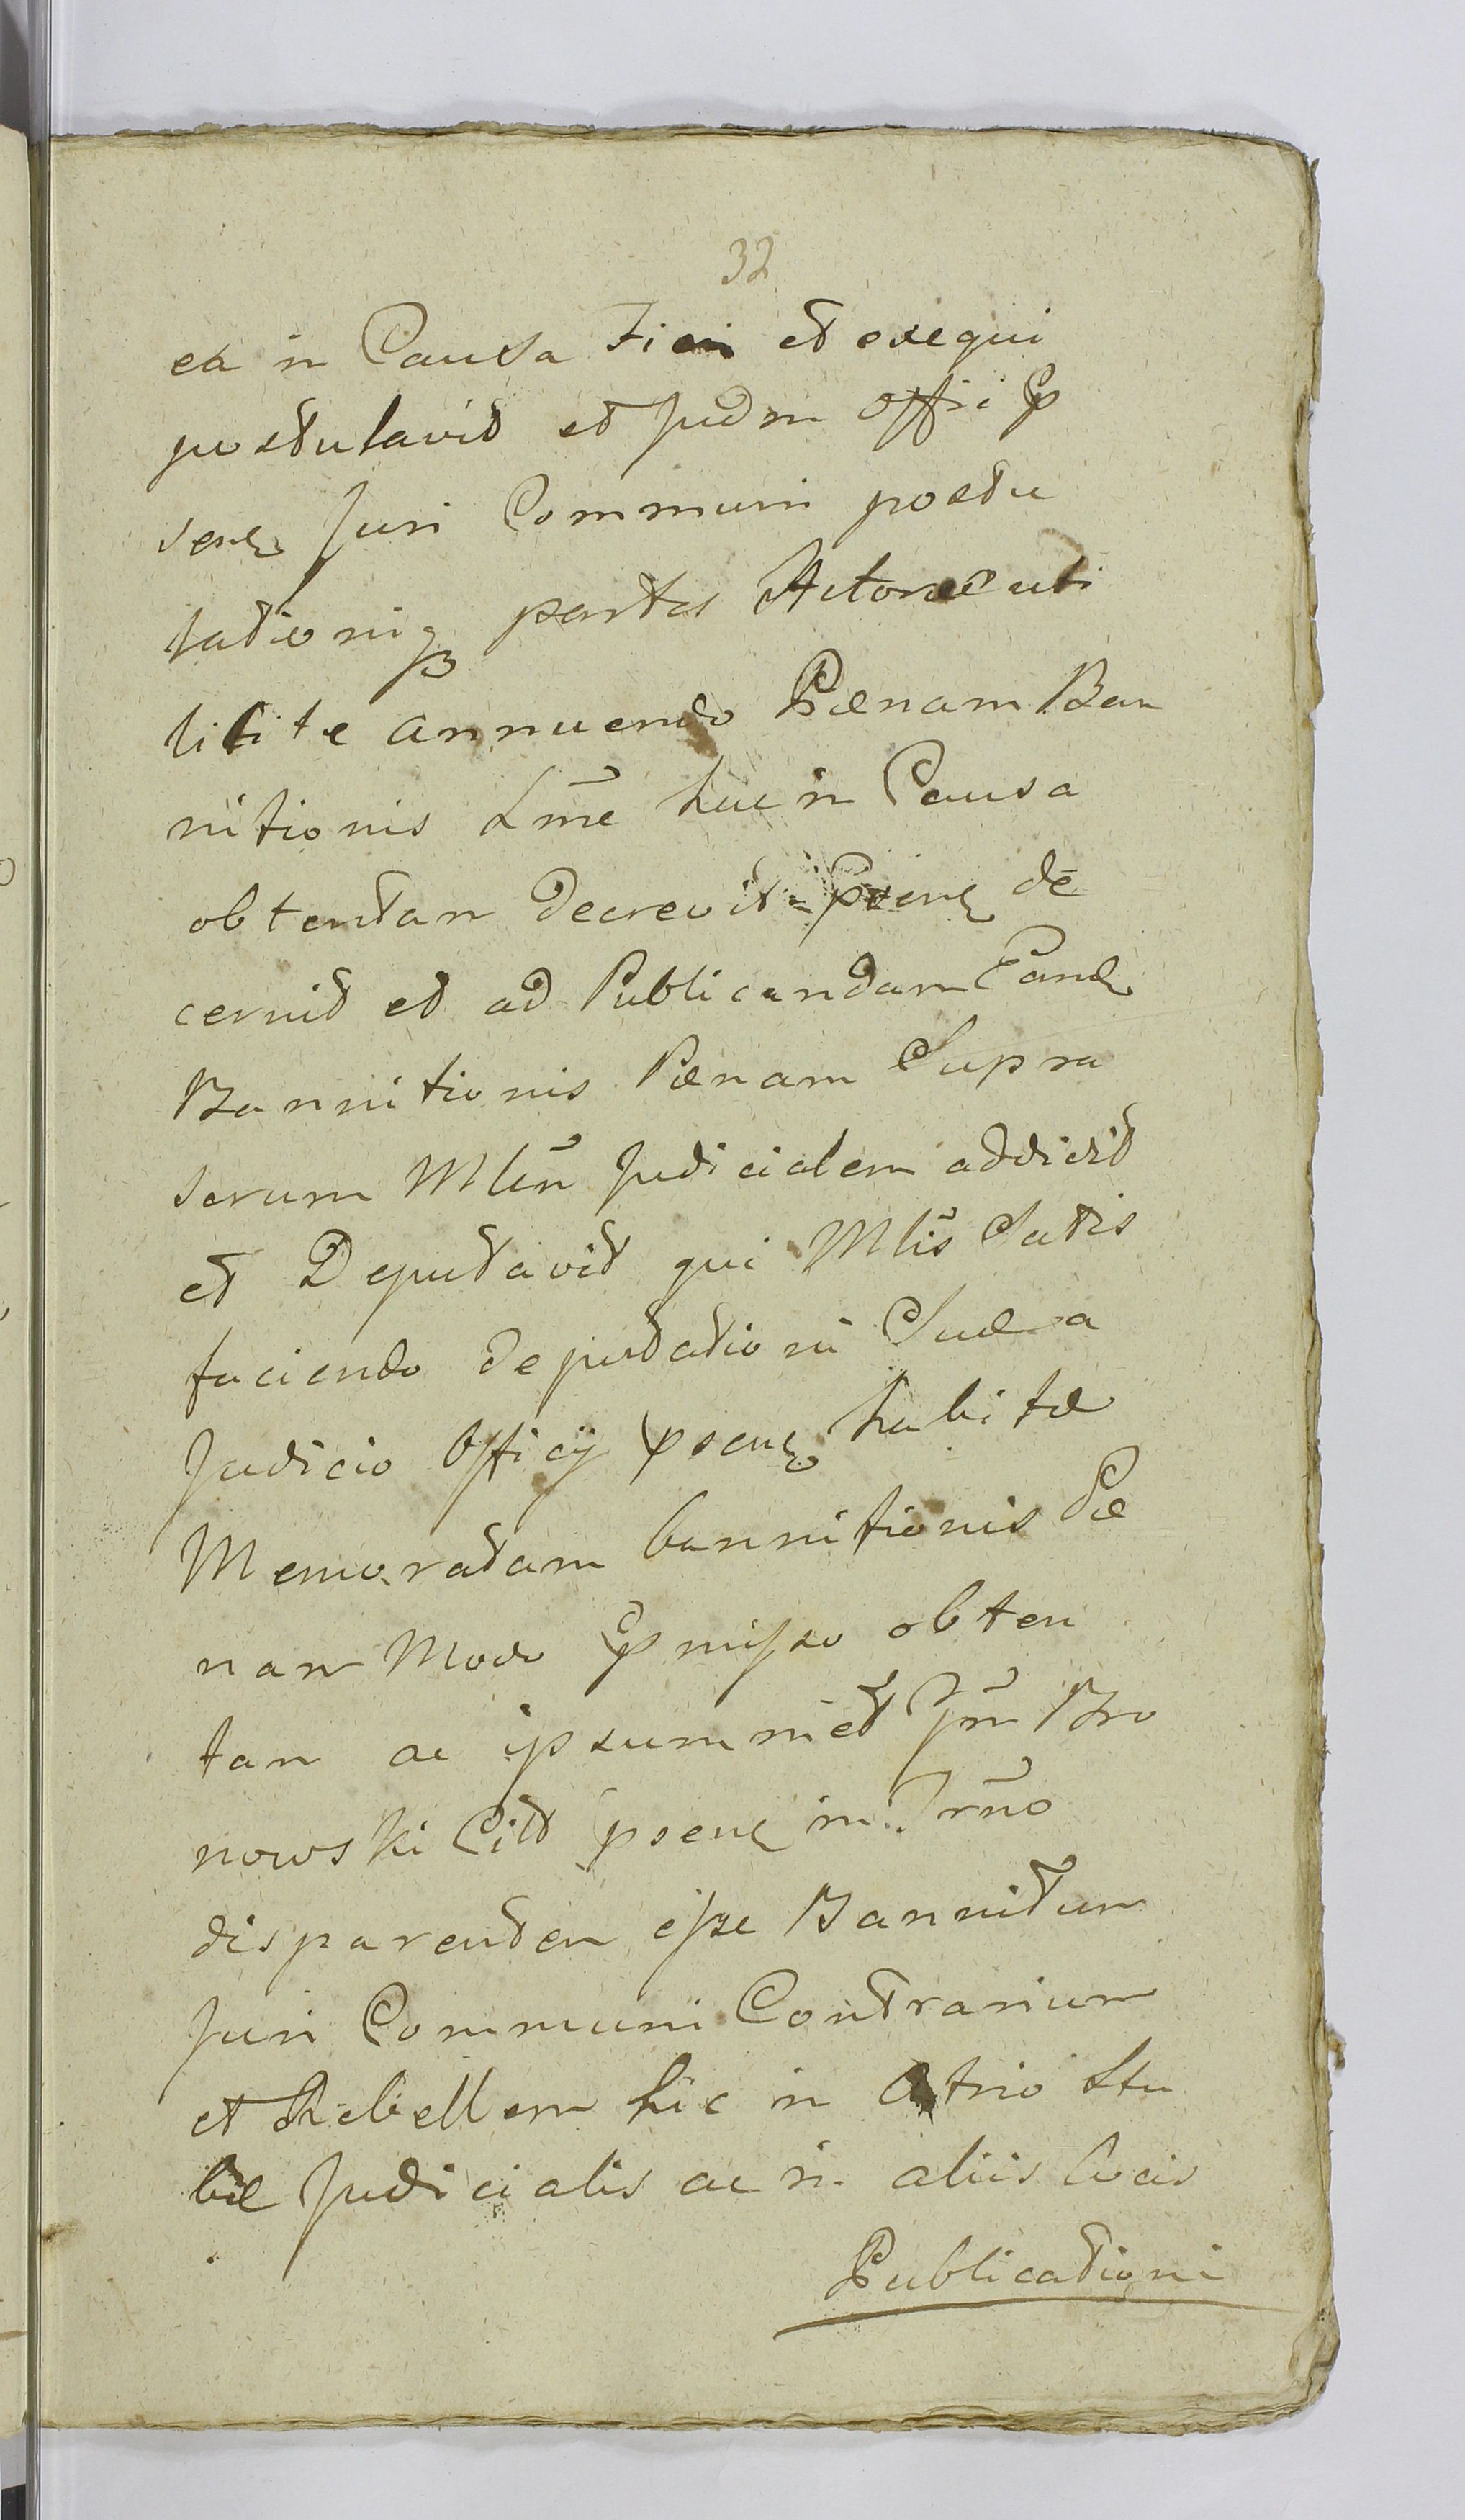 32
ea in Causa Fieri et exequi
postulavit et Judm Offii p
senq Juri Communi postu
lationiq partis Actoreæ uti
licite annuendo Pænam Ban
nitionis Lme hac in Causa
obtentam decrevit psenq de
cernit et ad Publicandam Eand
Bannitionis Pænam Supra
scrum Mlem Judicialem addidit
et Deputavit qui Mlis Satis
faciendo deputationi Suæ a
Judicio Officij psenq habitæ
Memoratam bannitionis Pæ
nam Modo pmisso obten
tam ac ipsummet Bro
nowski Citt psenq in Trno
disparentem esse Bannitum
Juri Communi Contrarium
et Rebellem hic in Atrio Stu
bæ Judicialis ac in aliis locis
Publicationi